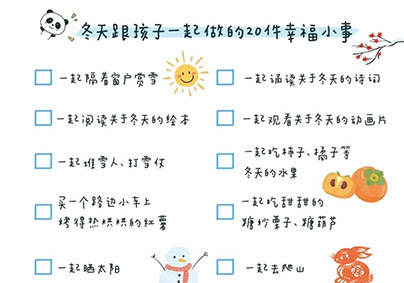 冬天跟孩子一起做的20件幸福小事
一起隔着窗户赏雪
一起诵读关于冬天的诗词
一起阅读关于冬天的绘本
一起观看关于冬天的动画片
一起堆雪人、打雪仗
一起吃柿子、橘子等
冬天的水果
买一个路边小车上
烤得热烘烘的红薯
一起吃甜甜的
糖炒栗子、糖葫芦
一起晒太阳
一起去爬山